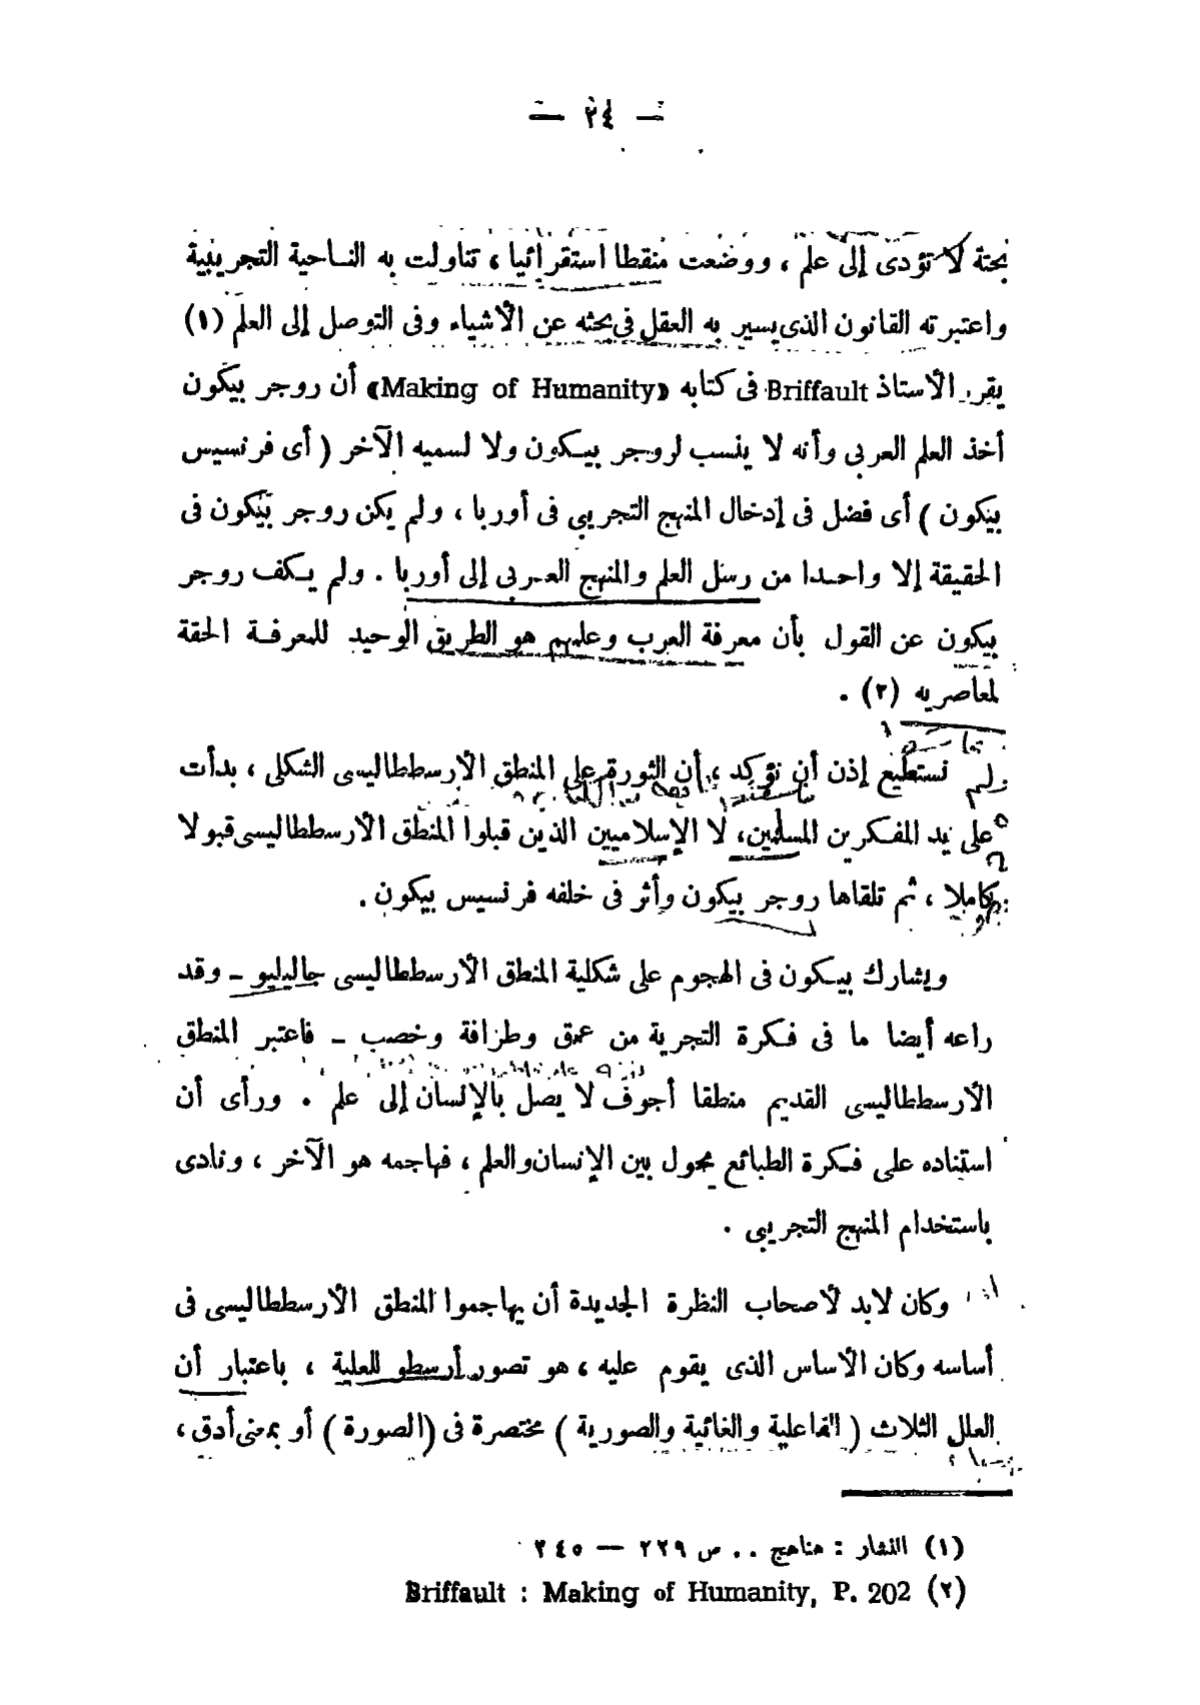 — ٢٤ —
بحتة لا تؤدى إلى علم ، ووضعت منقطا استقرائيا ، تناولت به الناحية التجريبية
واعتبرته القانون الذى يسير به العقل فى بحثه عن الأشياء وفى التوصل إلى العلم (١)
يقرر الأستاذ Briffault فى كتابه «Making of Humanity» أن روجر بيكون
أخذ العلم العربى وأنه لا ينسب لروجر بيكون ولا لسميه الآخر ( أى فرنسيس
بيكون ) أى فضل فى إدخال المنهج التجريبى فى أوربا ، ولم يكن روجر بيكون فى
الحقيقة إلا واحدا من رسل العلم والمنهج العربى إلى أوربا . ولم يكف روجر
بيكون عن القول بأن معرفة العرب وعلمهم هو الطريق الوحيد للمعرفة الحقة
لمعاصريه (٢) .
نستطيع إذن أن نؤكد ، أن الثورة على المنطق الأرسططاليسى الشكلى ، بدأت
على يد المفكرين المسلمين، لا الإسلاميين الذين قبلوا المنطق الأرسططاليسى قبولا
كاملا ، ثم تلقاها روجر بيكون وأثر فى خلفه فرنسيس بيكون .
ويشارك بيكون فى الهجوم على شكلية المنطق الأرسططاليسى جاليليو – وقد
راعه أيضا ما فى فكرة التجربة من عمق وطرافة وخصب – فاعتبر المنطق
الأرسططاليسى القديم منطقا أجوف لا يصل بالإنسان إلى علم . ورأى أن
استناده على فكرة الطبائع يحول بين الإنسان والعلم ، فهاجمه هو الآخر ، ونادى
باستخدام المنهج التجريبى .
وكان لابد لأصحاب النظرة الجديدة أن يهاجموا المنطق الأرسططاليسى فى
أساسه وكان الأساس الذى يقوم عليه ، هو تصور أرسطو للعلية ، باعتبار أن
العلل الثلاث ( الفاعلية والغائية والصورية ) مختصرة فى (الصورة ) أو بمعنى أدق ،
(١) النشار : مناهج . . ص ٢٢٩ — ٢٤٥
(٢) Briffault : Making of Humanity, P. 202